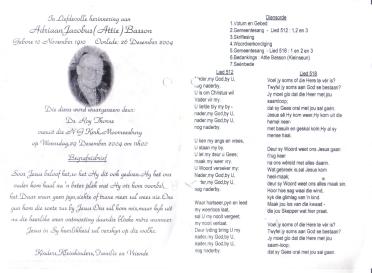 In Liefdevolle herinnering aan
Adriaan Jacobus (Attie) Basson
Gebore 10 November 1910 Oorlede 26 Desember 2004
Die diens word waargeneem deur:
Ds. Thorne
vanuit die N G Kerk, Moorreesburg
op Woensdag 29 Desember 2004 om 11h00
Begrafnisbrief
Soos Jesus beloof het, so het Hy dit ook gedoen. Hy het ons
ouder kom haal na 'n beter plek wat Hy vir hom voorberei
het. Daar waar geen pyn, siekte of trane meer sal wees nie. Ons
gun hom die soete rus by Jesus. Ons sal hom mis, maar kyk uit
na die heerlike weer ontmoeting daardie blinde môre wanneer
Jesus in Sy heerlikheid sal verskyn op die wolke.
Kinders, Kleinkinders, Familie en Vriende
Diensorde
1. Votum en Gebed
2. Gemeentesang - Lied 512 : 1,2 en 3
3. Skriflesing
4. Woordverkondiging
5. Gemeentesang - Lied 518 : 1,2 en 3
6. Bedankings : Attie Basson (Kleinseun)
7. Seënbede
Lied 512
nader, my God, by U,
nader my God, by U,
U is ons Christus wil
Vader vir my.
U liefde bly my by -
nader, my God, by U,
nader, my God, by U,
nog naderby.
U ken my angs en vrees,
U staan my by.
U let my deur u Gees;
maak my weer
U Woord verseker my
Nader my God, by U
nader my God, by U,
nog naderby.
Waar hartseer, pyn en leed
my weerloos laat,
sal U my nooit vergeet,
my nooit verlaat.
Deur lyding bring U my
Nader, my God, by U,
nader, my God, by U,
nog naderby.
Lied 518
Voel jy soms of die Here ver is?
Twyfel jy soms aan God se bestaan?
Jy moet glo dat die Here met jou
saamloop;
dat sy Gees ons met jou sal gaan.
Jesus sê Hy kom weer, Hy kom uit die
hemel neer
met basuin en geskal kom Hy al sy
mense haal.
Deur sy Woord weet ons Jesus gaan
terug keer
na ons wêreld met alles daarin.
Wat gebreek is sal Jesus kom
heel-maak;
deur sy Woord weet ons alles maak sin.
Hoor hoe sag waai die wind,
kyk die glimlag van 'n kind.
Maak jou les van die kwaad -
die jou Skepper wat hier praat.
Voel jy soms of die Here ver is?
Twyfel jy soms aan God se bestaan?
Jy moet glo dat die Here met jou
saamloop;
dat sy Gees ons met jou sal gaan.